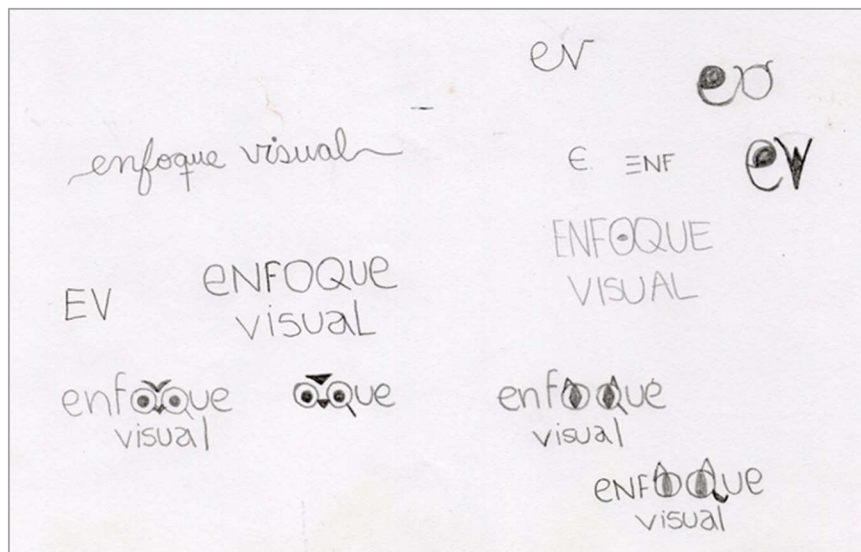 ev
ev
enfoque visual
E ENF
ev
ENFOQUE
VISUAL
EV
eNFOQUe
visuaL
enfoque
visual
oque
enfoque
visual
eNFOQUe
visual